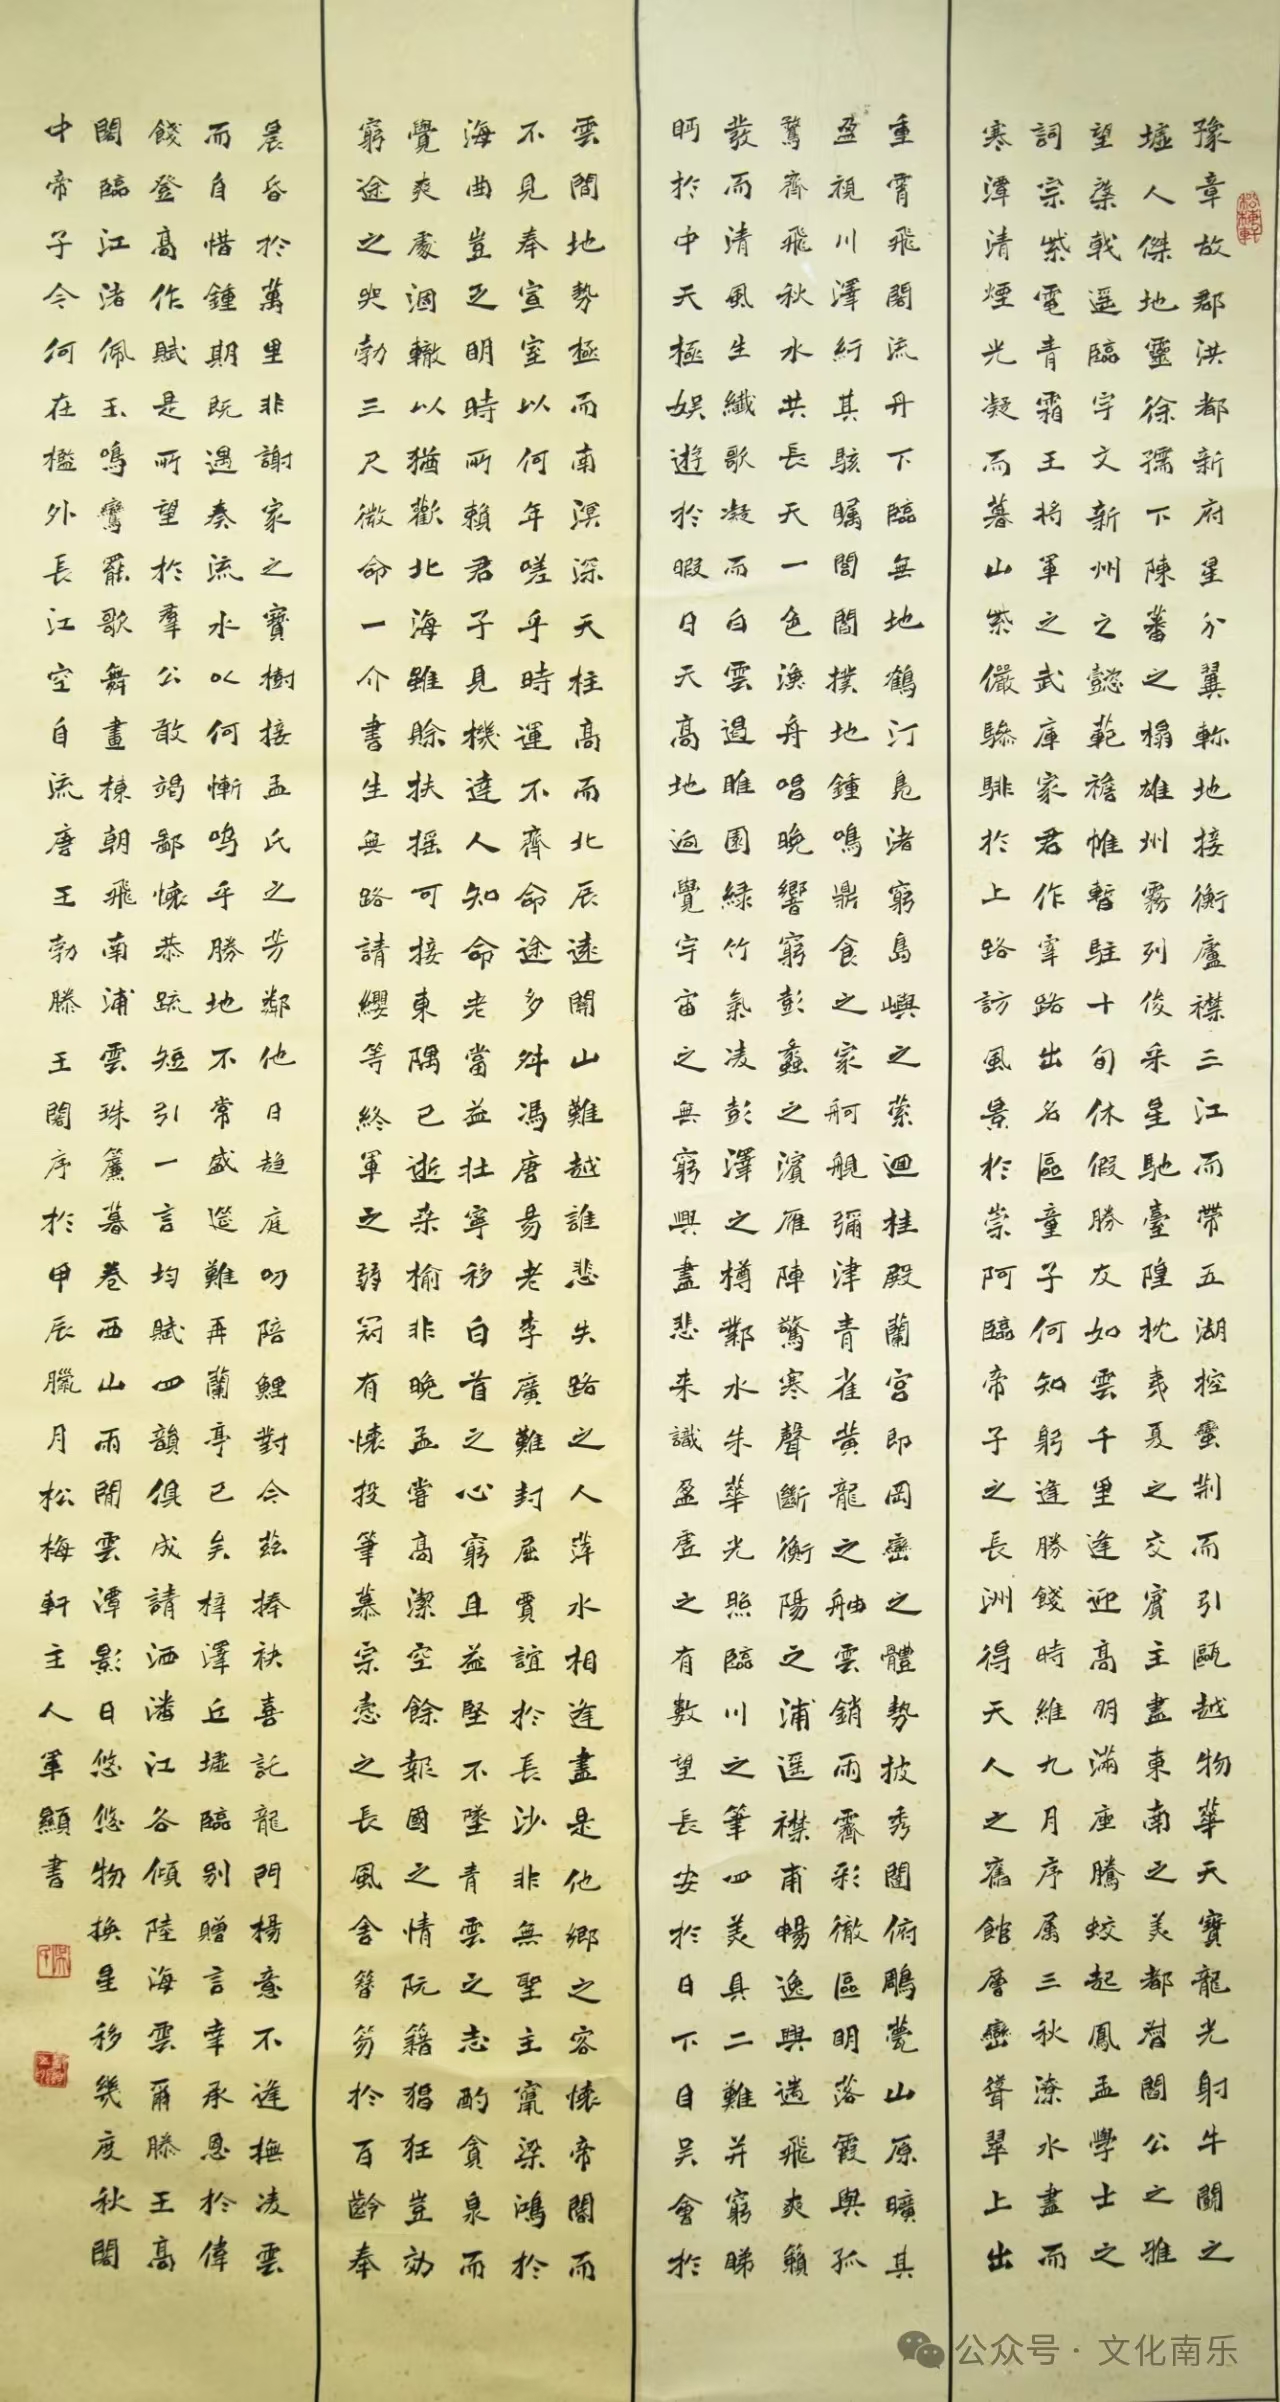 豫章故郡洪都新府星分翼軫地接衡廬襟三江而帶五湖控蠻荆而引甌越物華天寶龍光射牛鬪之
墟人傑地靈徐孺下陳蕃之榻雄州霧列俊采星馳臺隍枕夷夏之交賓主盡東南之美都督閻公之雅
望棨戟遥臨宇文新州之懿範襜帷暫駐十旬休假勝友如雲千里逢迎高朋滿座騰蛟起鳳孟學士之
詞宗紫電青霜王将軍之武庫家君作宰路出名區童子何知躬逢勝餞時維九月序属三秋潦水盡而
寒潭清煙光凝而暮山紫儼驂騑於上路訪風景於崇阿臨帝子之長洲得天人之舊館層巒聳翠上出
重霄飛閣流丹下臨無地鶴汀鳧渚窮島嶼之萦迴桂殿蘭宮即岡巒之體勢披秀闥俯雕甍山原曠其
盈視川澤紆其駭矚閭閻撲地鍾鳴鼎食之家舸艦彌津青雀黄龍之舳雲銷雨霽彩徹區明落霞與孤
鶩齊飛秋水共長天一色漁舟唱晚響窮彭蠡之濱雁陣驚寒聲斷衡陽之浦遥襟甫暢逸興遄飛爽籟
發而清風生纖歌凝而白雲遏睢園緑竹氣凌彭澤之樽鄴水朱華光照臨川之筆四美具二難并窮睇
眄於中天極娱遊於暇日天高地迥覺宇宙之無窮興盡悲来識盈虚之有數望長安於日下目吴會於
雲間地勢極而南溟深天柱高而北辰遠關山難越誰悲失路之人萍水相逢盡是他鄉之客懷帝閽而
不見奉宣室以何年嗟乎時運不齊命途多舛馮唐易老李廣難封屈賈誼於長沙非無聖主竄梁鴻於
海曲豈乏明時所賴君子見機達人知命老當益壯寧移白首之心窮且益堅不墜青雲之志酌貪泉而
覺爽處涸轍以猶歡北海雖賒扶摇可接東隅已逝桑榆非晚孟嘗高潔空餘報國之情阮籍猖狂豈効
窮途之哭勃三尺微命一介書生無路請纓等終軍之弱冠有懷投筆慕宗愨之長風舍簪笏於百齡奉
晨昏於萬里非謝家之寶樹接孟氏之芳鄰他日趨庭叨陪鯉對今茲捧袂喜託龍門楊意不逢撫凌雲
而自惜鍾期既遇奏流水以何慚嗚乎勝地不常盛筵難再蘭亭已矣梓澤丘墟臨别贈言幸承恩於偉
餞登高作賦是所望於羣公敢竭鄙懷恭疏短引一言均賦四韻俱成請洒潘江各傾陸海雲爾滕王高
閣臨江渚佩玉鳴鸞罷歌舞畫棟朝飛南浦雲珠簾暮卷西山雨閒雲潭影日悠悠物換星移幾度秋閣
中帝子今何在檻外長江空自流唐王勃滕王閣序於甲辰臘月松梅軒主人軍顯書
公众号·文化南乐